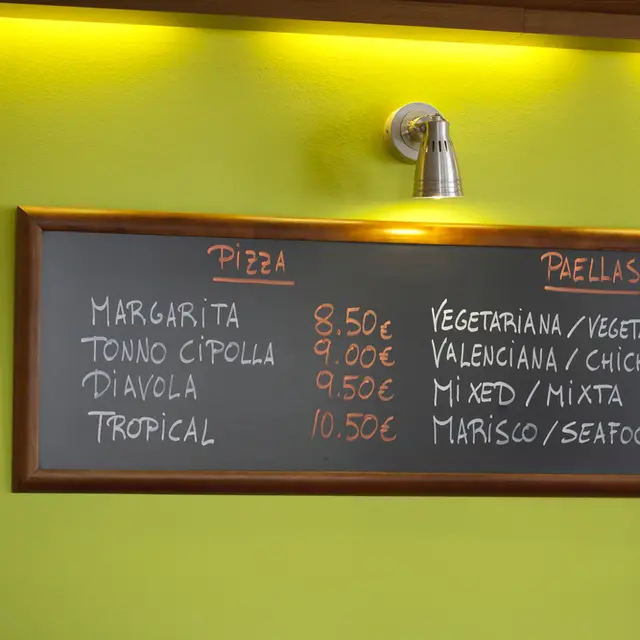 PIZZA
MARGARITA 8.50€
TONNO CIPOLLA 9.00€
DIAVOLA 9.50€
TROPICAL 10.50€
PAELLAS
VEGETARIANA /
VALENCIANA /
MIXED / MIXTA
MARISCO /